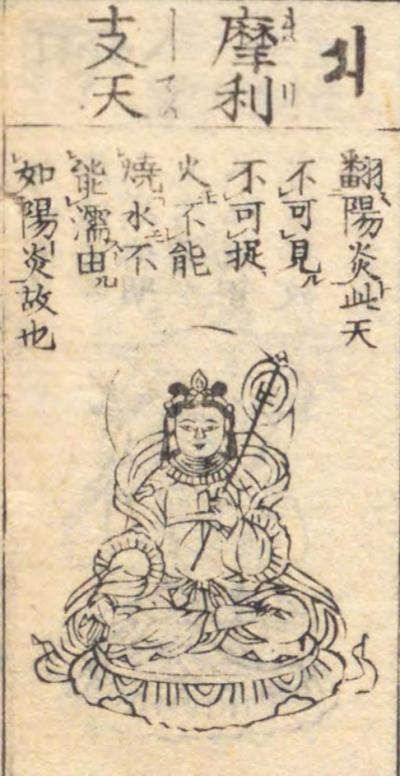 摩利
支天
翻陽炎此天
不可見ル
不可捉
火不能
燒水不
能濡由ル
如陽炎故也